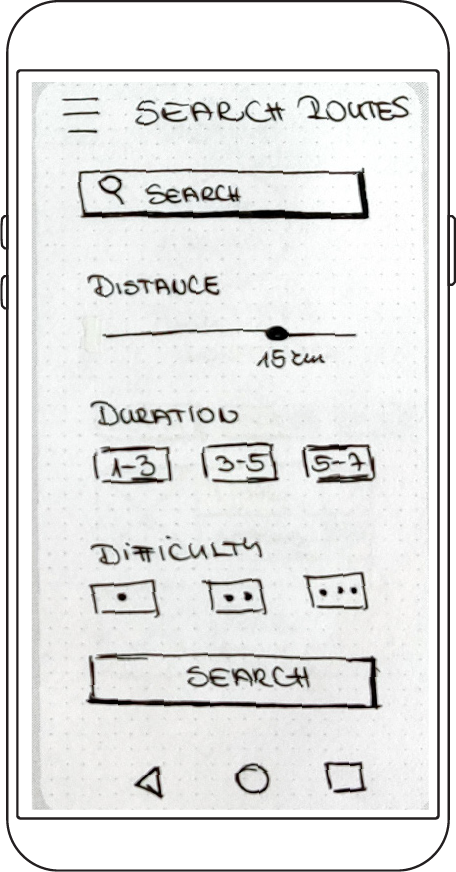 SEARCH ROUTES
SEARCH
DISTANCE
15 km
DURATION
1-3 3-5 5-7
DIFFICULTY
SEARCH